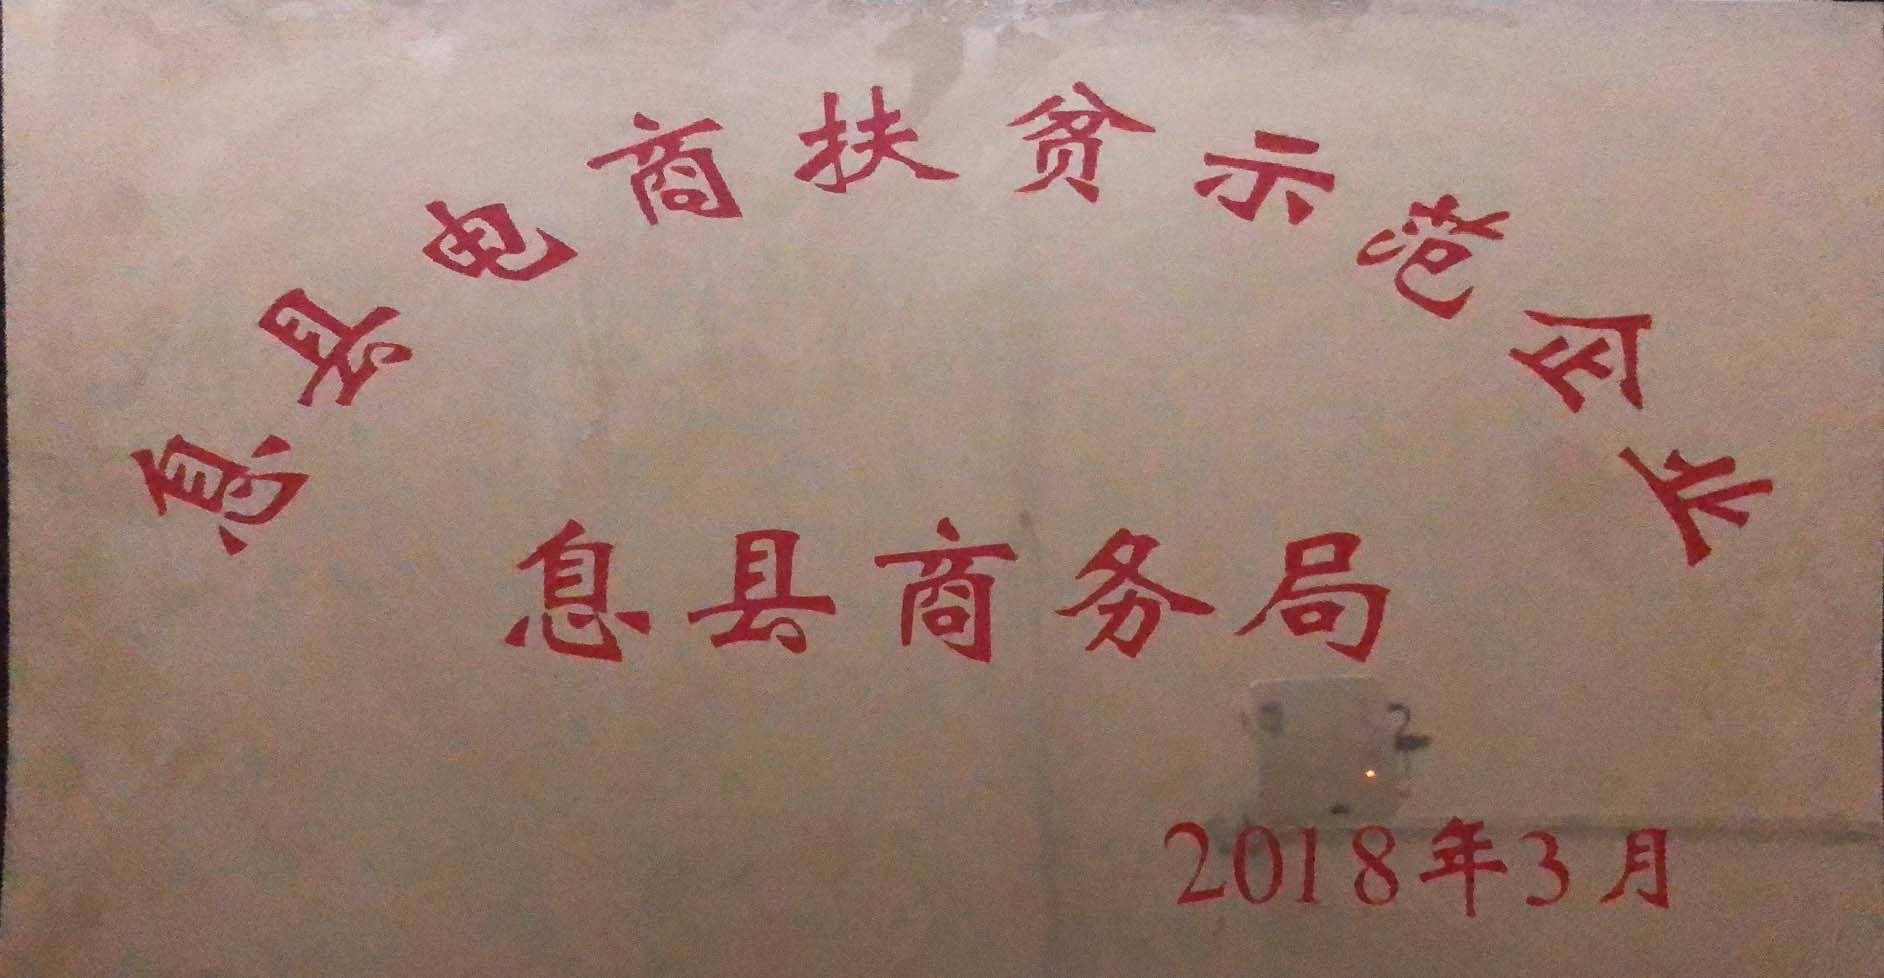 息县电商扶贫示范企业
息县商务局
2018年3月